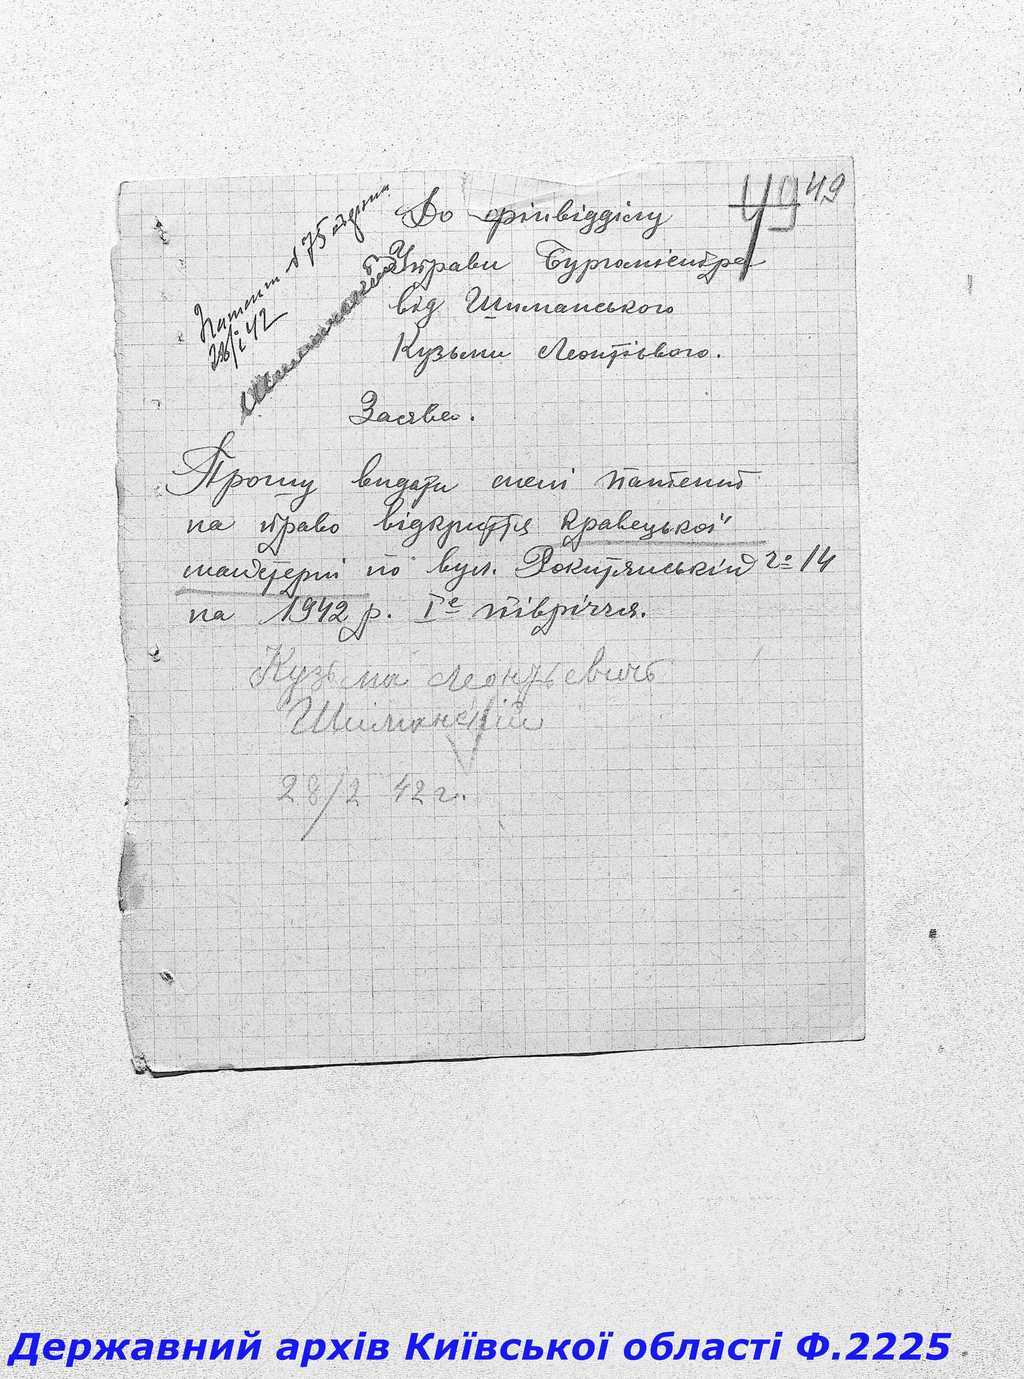 49 49
До фінвідділу
Управи Бургомістра
від Шиманського
Кузьми Леонтієвого.
Патент № 75
28/I 42
Заява.
Прошу видати мені патент
на право відкриття кравецької
майстерні по вул. Рокитянській № 14
на 1942 р. Iе півріччя.
Кузьма Леонтьевичь
Шиманський
28/2 42 г.
Державний архів Київської області Ф.2225